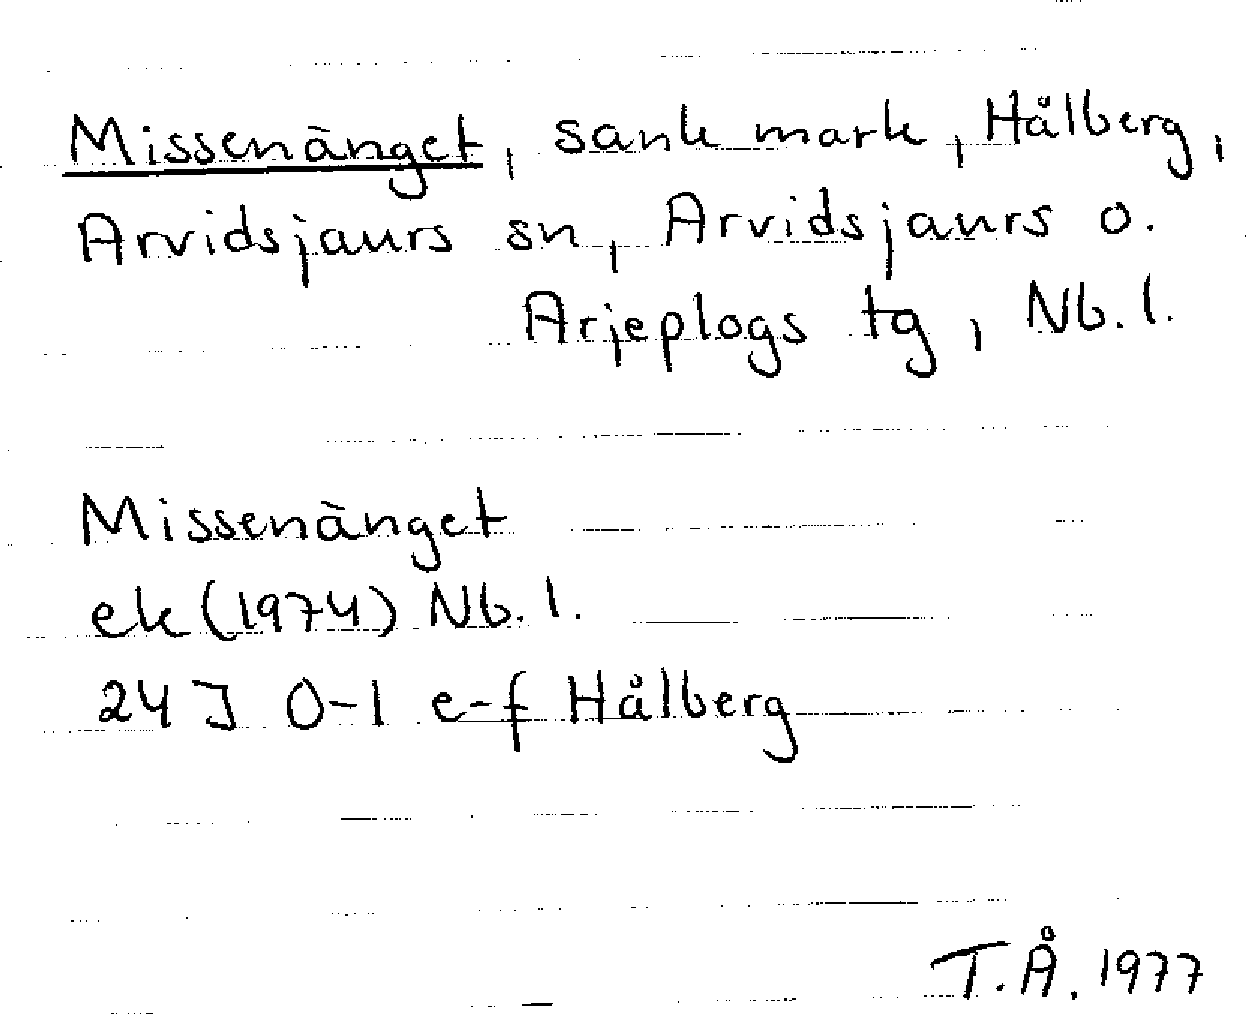 Missenänget, sank mark, Hålberg,
Arvidsjaurs sn, Arvidsjaurs o.
Arjeplogs tg, Nb.l.
Missenänget
ek (1974) Nb.l.
24 J 0-1 e-f Hålberg
T.Å. 1977